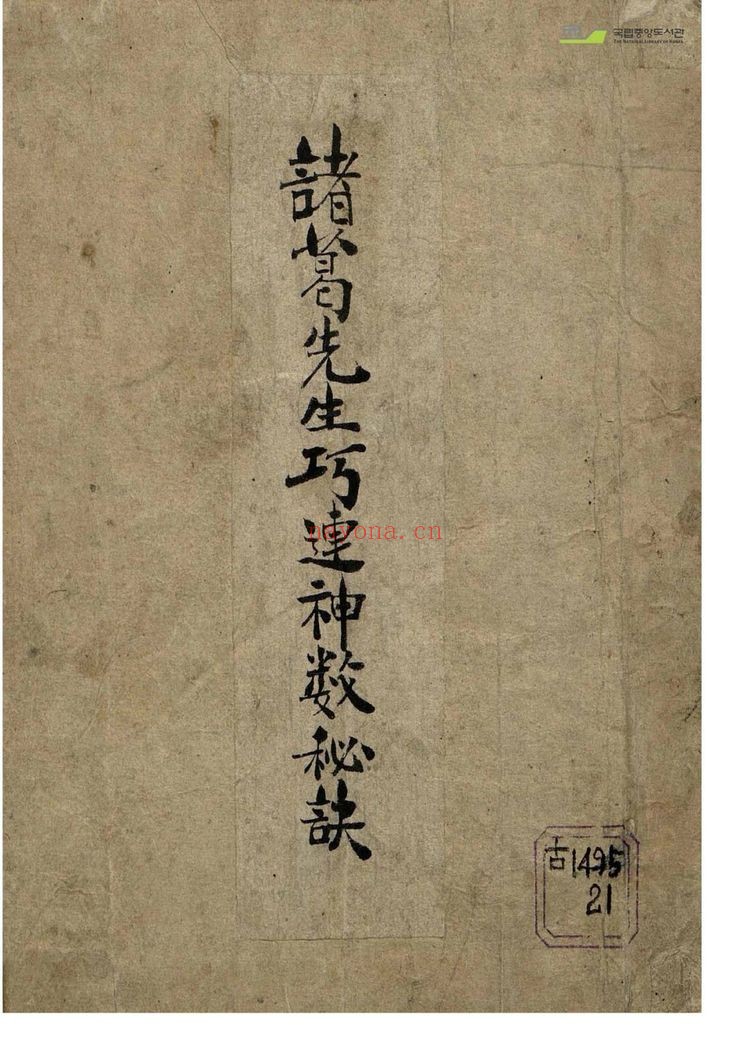 국립중앙도서관
THE NATIONAL LIBRARY OF KOREA
諸葛先生巧連神数秘訣
nayona.cn
古1495
21